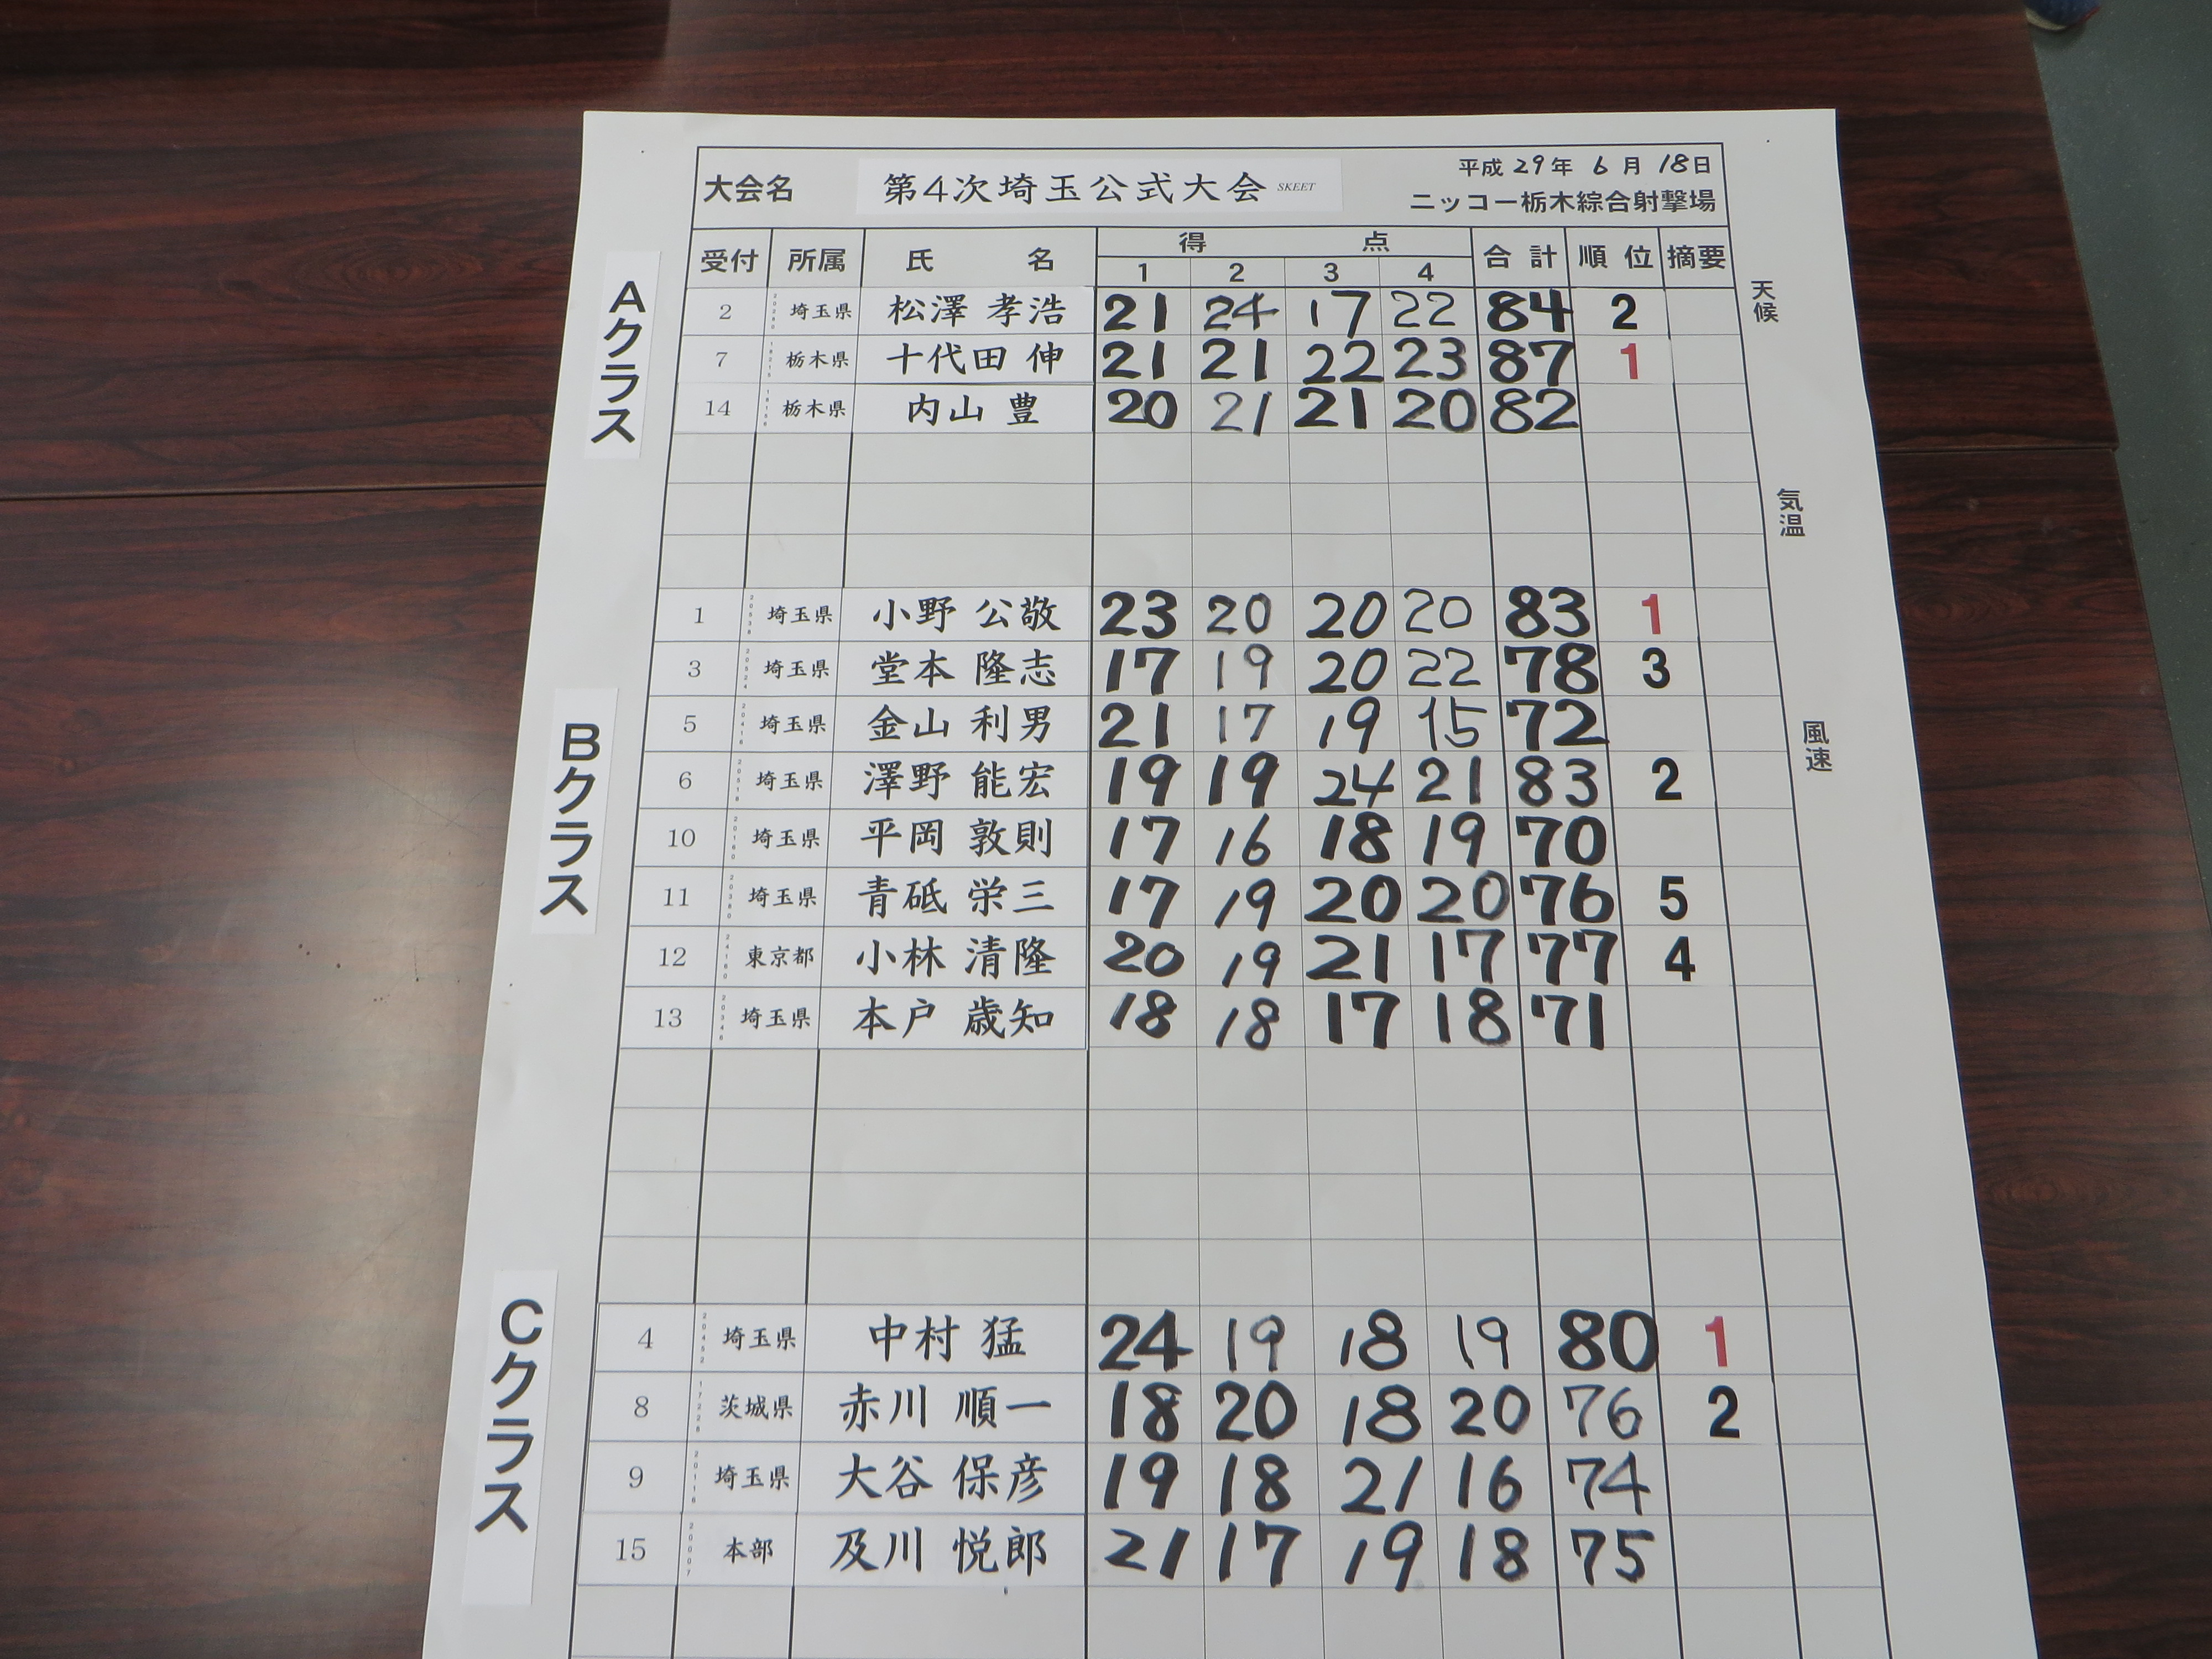 平成 29年 6月 18日
大会名 第4次埼玉公式大会 SKEET
ニッコー栃木綜合射撃場
受付 所属 氏名 得点 合計 順位 摘要
1 2 3 4
天候
気温
風速
Aクラス
2 埼玉県 松澤 孝浩 21 24 17 22 84 2
7 栃木県 十代田 伸 21 21 22 23 87 1
14 栃木県 内山 豊 20 21 21 20 82
Bクラス
1 埼玉県 小野 公敬 23 20 20 20 83 1
3 埼玉県 堂本 隆志 17 19 20 22 78 3
5 埼玉県 金山 利男 21 17 19 15 72
6 埼玉県 澤野 能宏 19 19 24 21 83 2
10 埼玉県 平岡 敦則 17 16 18 19 70
11 埼玉県 青砥 栄三 17 19 20 20 76 5
12 東京都 小林 清隆 20 19 21 17 77 4
13 埼玉県 本戸 歳知 18 18 17 18 71
Cクラス
4 埼玉県 中村 猛 24 19 18 19 80 1
8 茨城県 赤川 順一 18 20 18 20 76 2
9 埼玉県 大谷 保彦 19 18 21 16 74
15 本部 及川 悦郎 21 17 19 18 75